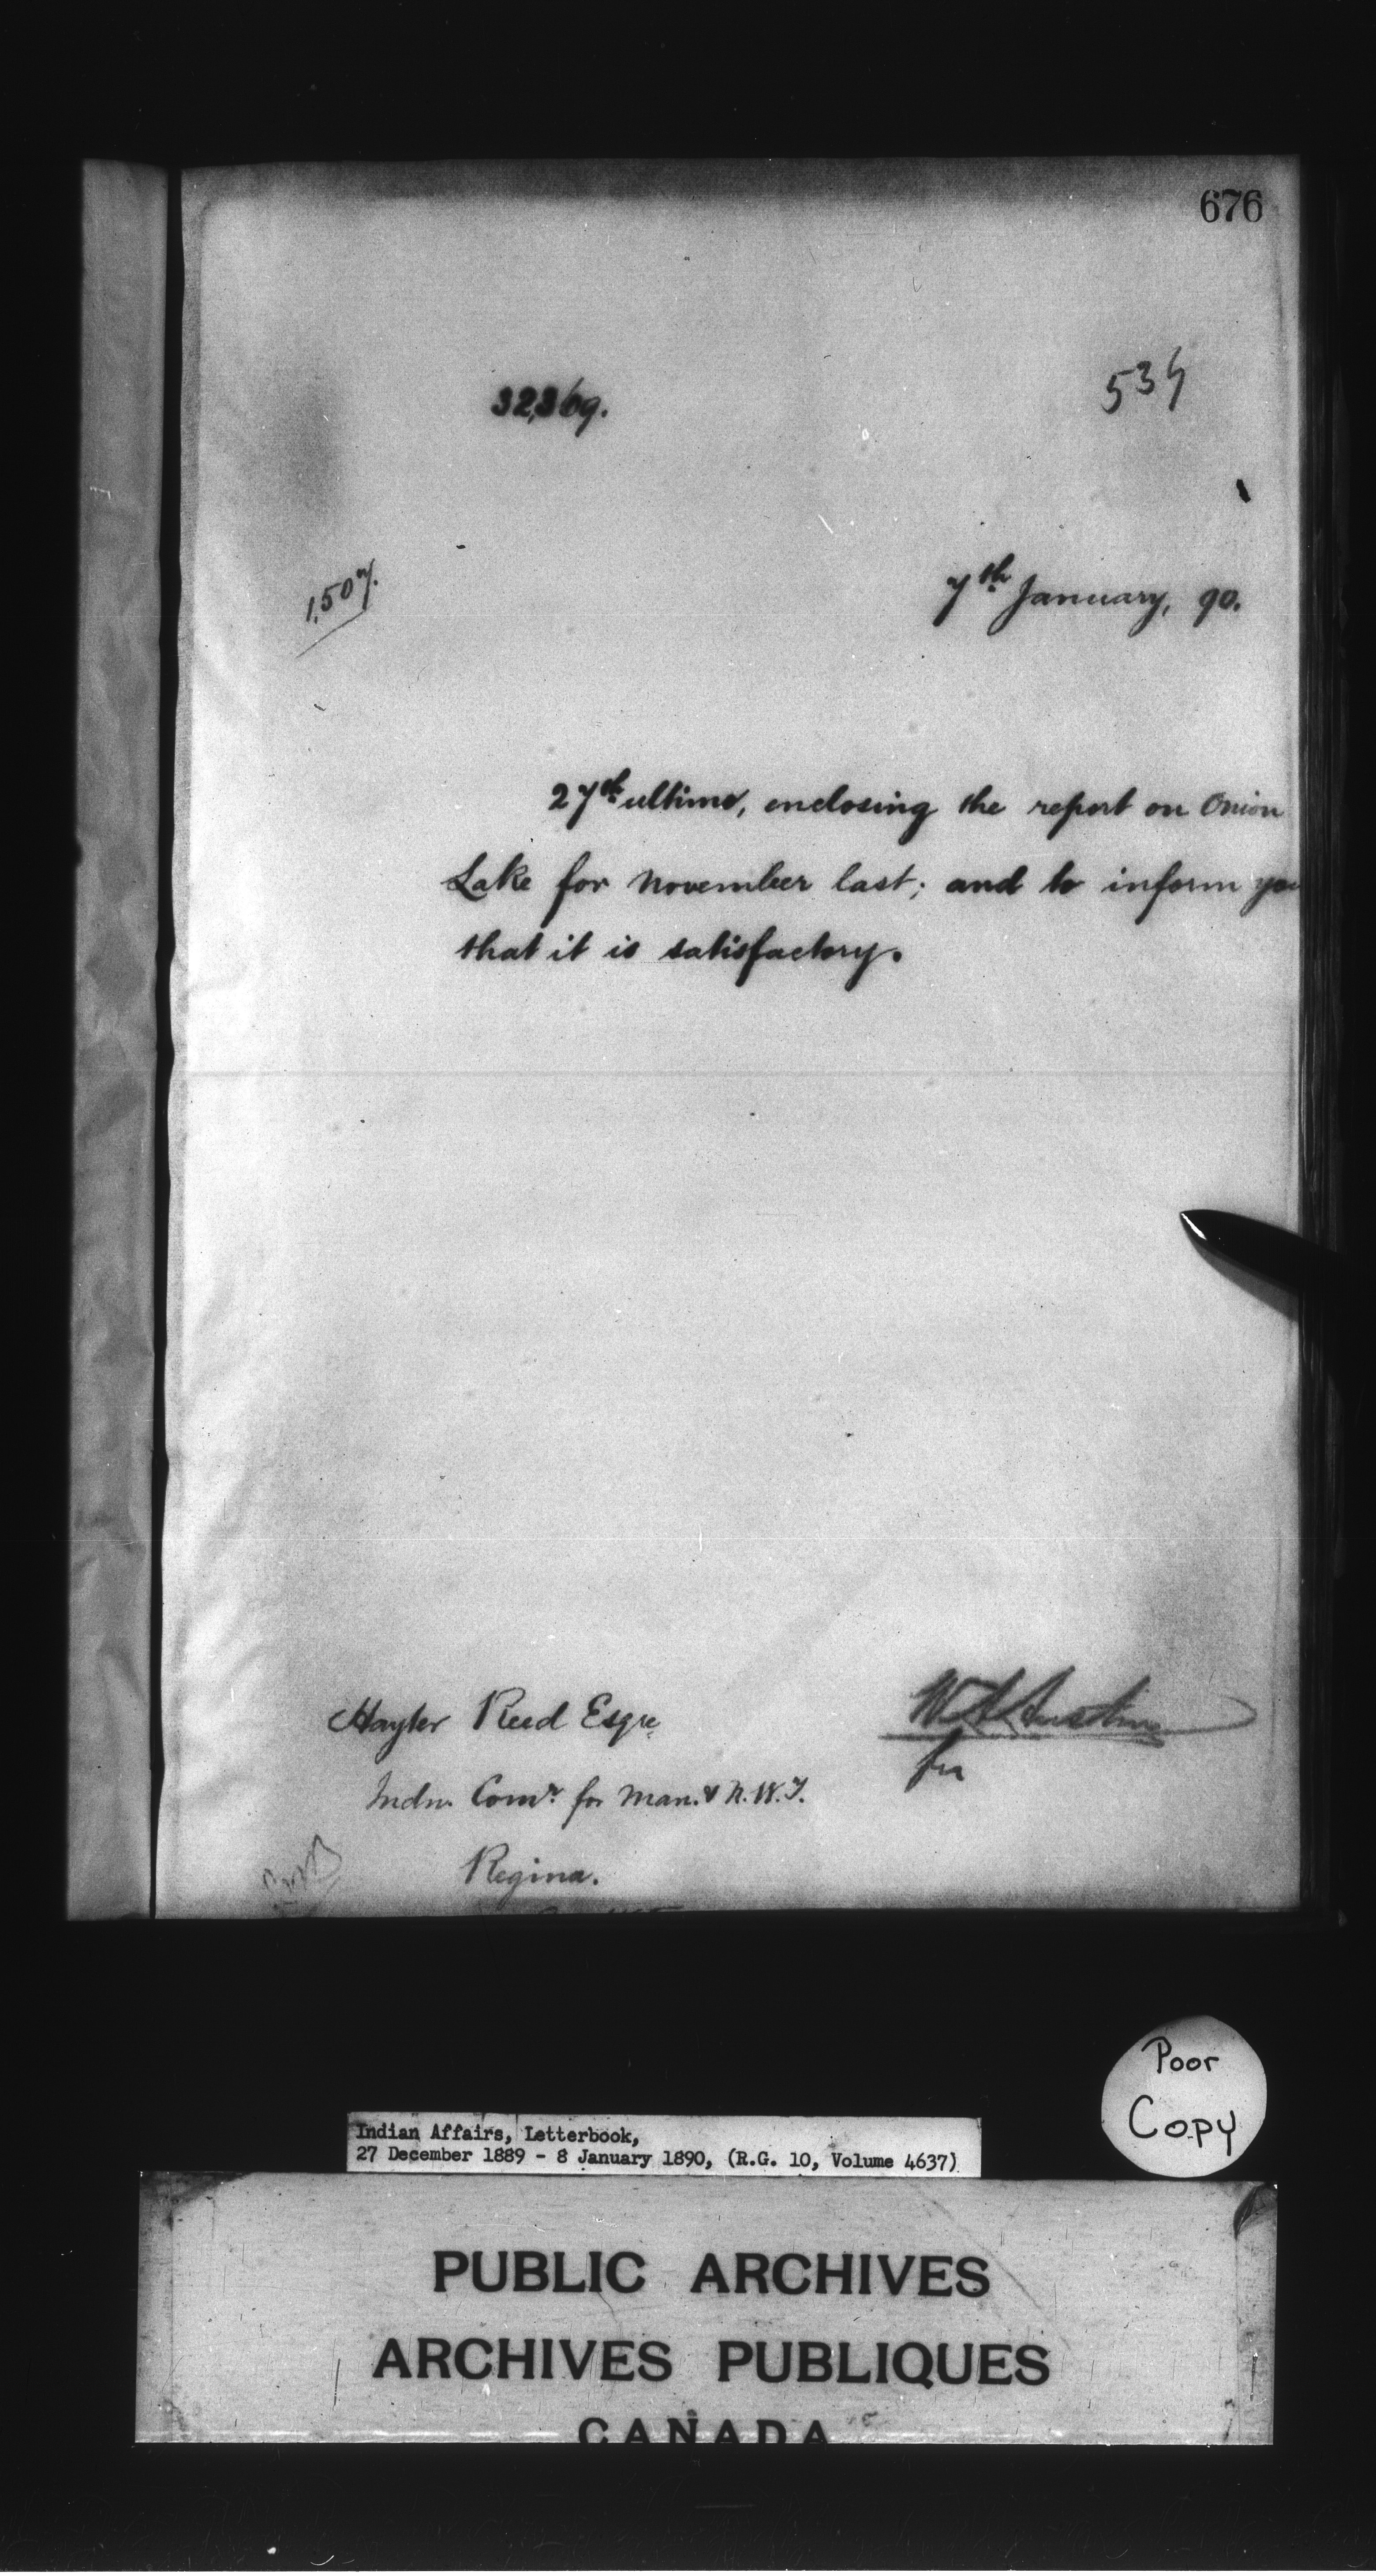 676
32,369.
534
1,507.
7th January, 90.
27th ultimo, enclosing the report on Onion
Lake for November last; and to inform you
that it is satisfactory.
Hayter Reed Esqre
W A Austin
for
Indn. Comr. for Man. & N.W.T.
Regina.
Poor
Copy
Indian Affairs, Letterbook,
27 December 1889 - 8 January 1890, (R.G. 10, Volume 4637)
PUBLIC ARCHIVES
ARCHIVES PUBLIQUES
CANADA